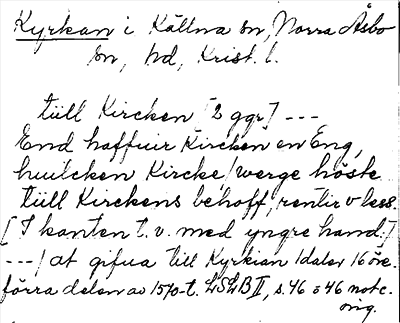 Kyrkan i Källna sn, Norra Åsbo
sn, hd, Krist. l.
tiill Kircken [2 ggr] ---
End haffuir Kircken en Eng,
huilcken Kircke/werge höste
tiill Kirckens behoff, rentir v kes.
[I kanten t. v. med yngre hand:]
---/at gifua till Kyrkian 1 daler 16 öre.
förra delen av 1570-t. LSLB II, s. 46 o 46 note.
orig.